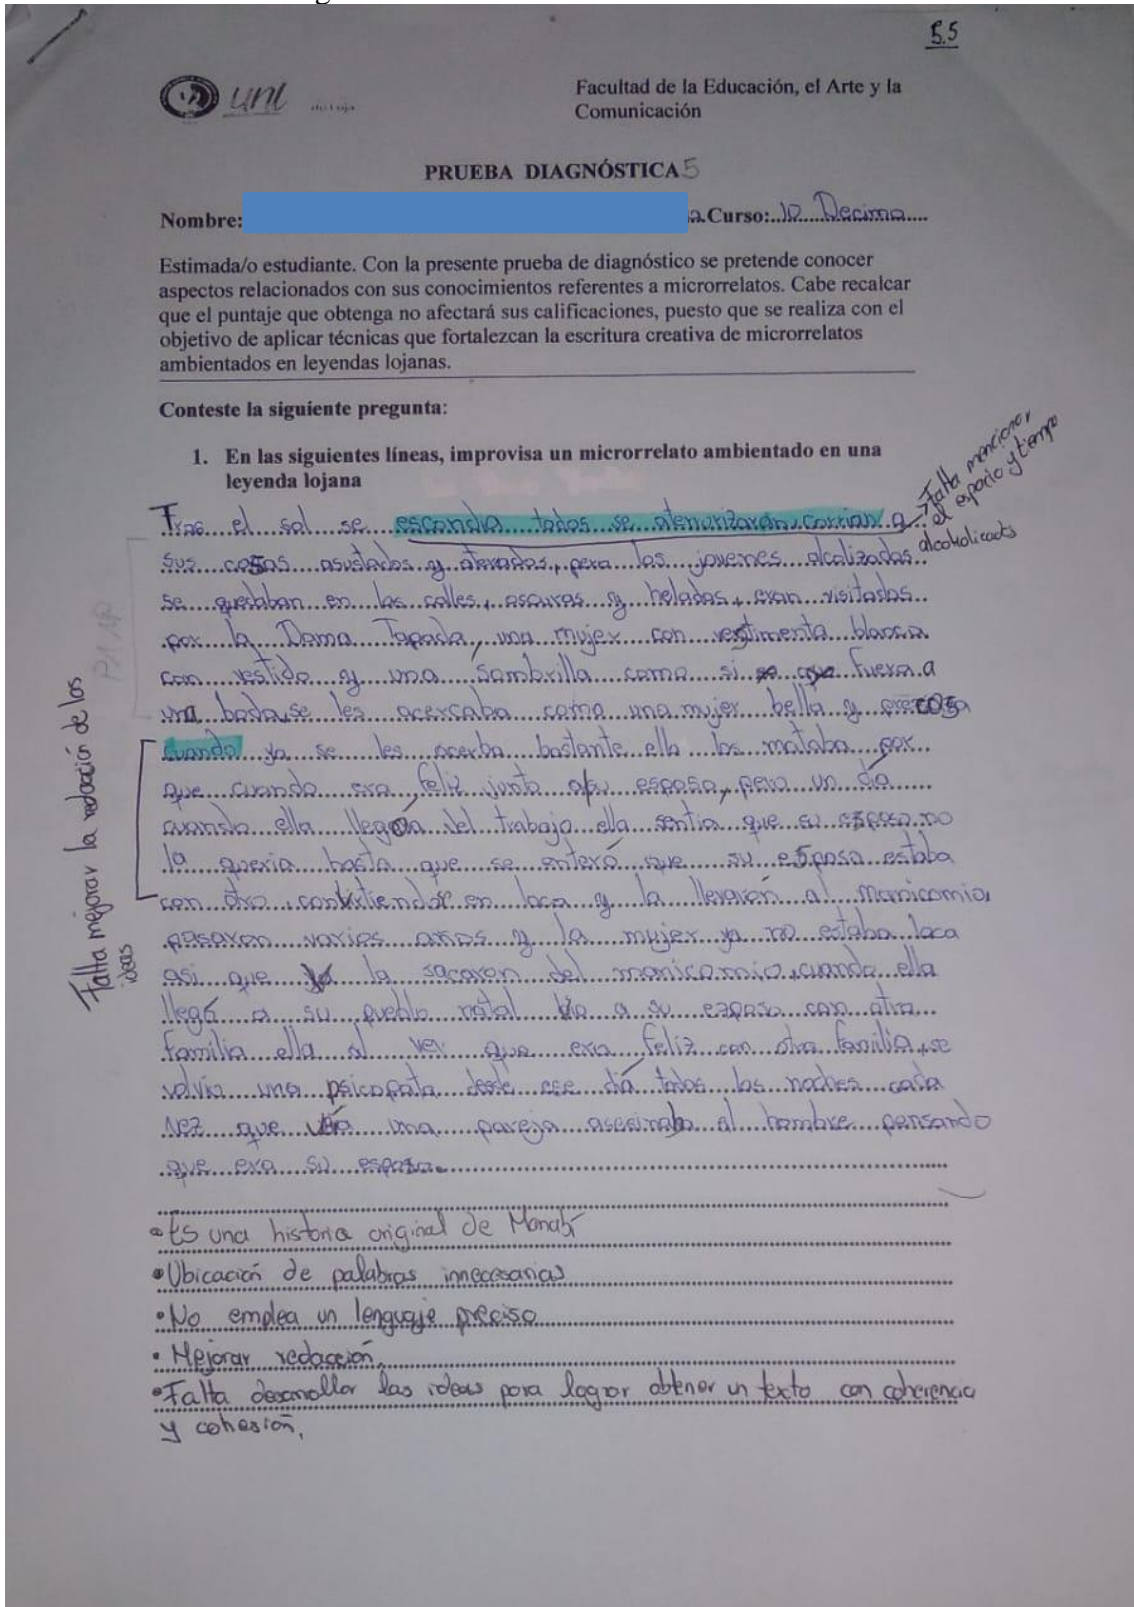 5.5
unl
Facultad de la Educación, el Arte y la
Comunicación
PRUEBA DIAGNÓSTICA 5
Nombre: a Curso: 10 Decimo
Estimada/o estudiante. Con la presente prueba de diagnóstico se pretende conocer
aspectos relacionados con sus conocimientos referentes a microrrelatos. Cabe recalcar
que el puntaje que obtenga no afectará sus calificaciones, puesto que se realiza con el
objetivo de aplicar técnicas que fortalezcan la escritura creativa de microrrelatos
ambientados en leyendas lojanas.
Conteste la siguiente pregunta:
1. En las siguientes líneas, improvisa un microrrelato ambientado en una
leyenda lojana
Falta mencionar
el espacio y tiempo
Tras el sol se escondia todos se aterrorizarán, corrian a
sus casas asustados y aterados, pero los jovenes alcolizados
alcoholizados
se quedaban en las calles, oscuras y heladas, eran visitados
por la Dama Tapada, una mujer con vestimenta blanca
con vestido y una sombrilla como si fuera a
una boda, se les acercaba como una mujer bella y preciosa
cuando ya se les acerba bastante ella los mataba por
que cuando era feliz junto a su esposo, pero un día
cuando ella llegó del trabajo ella sentia que su esposo no
la quería hasta que se enteró que su esposo estaba
con otra, convirtiendose en loca y la llevarón al manicomio,
pasaron varios años y la mujer ya no estaba loca
asi que la sacaron del manicomio, cuando ella
llegó a su pueblo natal vio a su esposo con otra
familia ella al ver que era feliz con otra familia, se
volvio una psicopata desde ese día todos las noches cada
vez que veía una pareja asesinaba al hombre pensando
que era su esposo.
Falta mejorar la redacción de los
ideas
• Es una historia original de Manabí
• Ubicación de palabras innecesarias
• No emplea un lenguaje preciso
• Mejorar redacción,
• Falta desarrollar las ideas para lograr obtener un texto con coherencia
y cohesión.